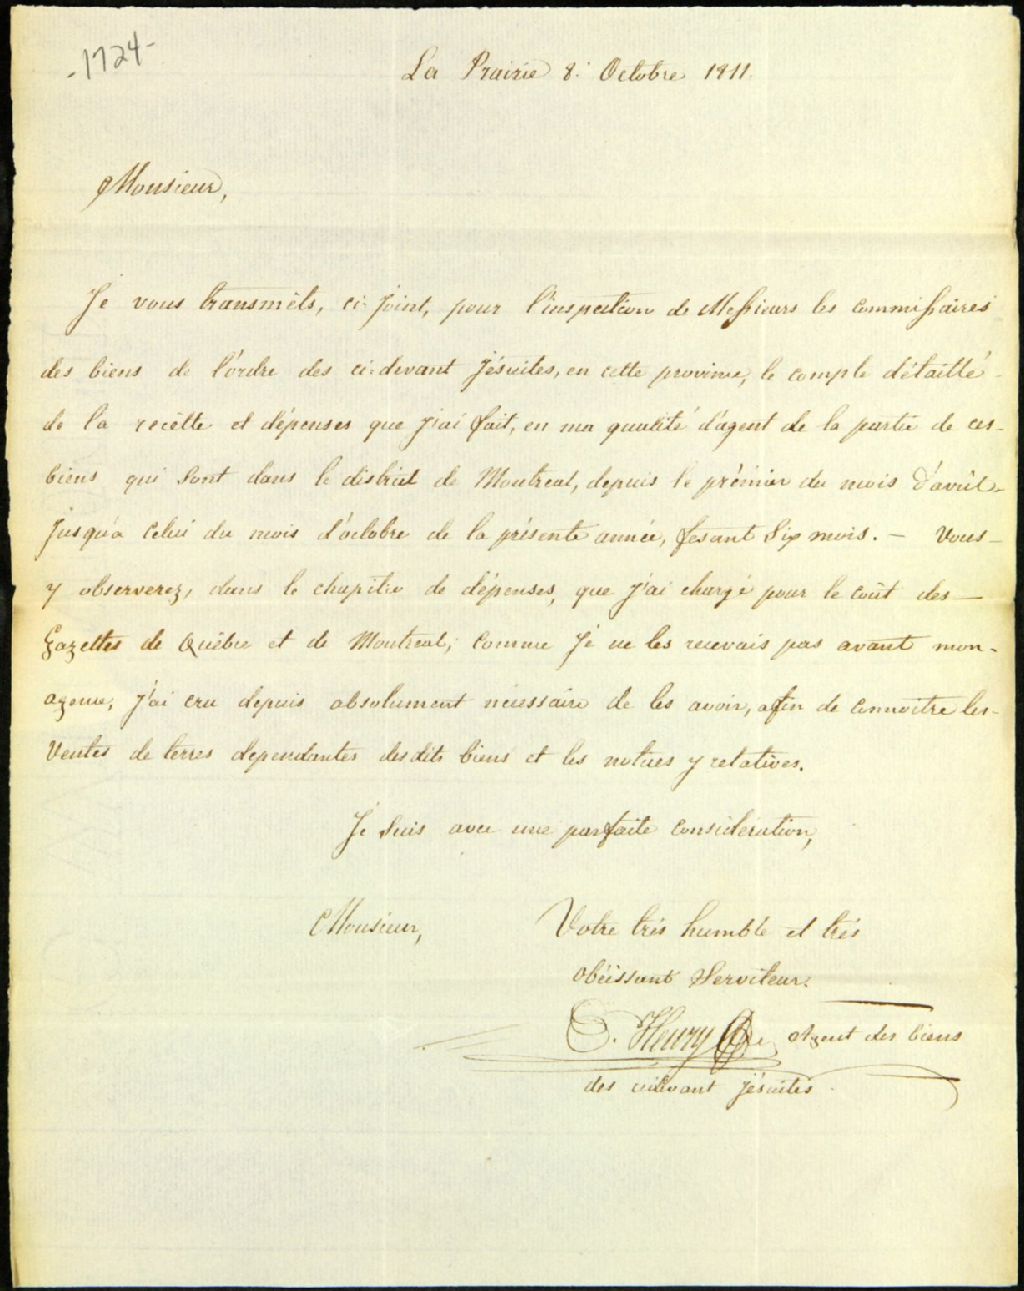 -1724-
La Prairie 8: Octobre 1811.
Monsieur,
Je vous transmèts, ci-joint, pour l'inspection de Messieurs les commissaires
des biens de l'ordre des ci-devant Jésuites, en cette province, le compte détaillé
de la recètte et dépenses que J'ai fait, en ma qualité d'agent de la partie de ces-
biens qui sont dans le district de Montreal, depuis le prémier du mois d'avril-
jusqu'a celui du mois d'octobre de la présente année, fesant Six mois. - Vous-
y observerez, dans le chapitre de dépenses, que J'ai chargé pour le coût des
Gazettes de Québec et de Montreal; comme Je ne les recevais pas avant mon-
agence, J'ai cru depuis absolument nécessaire de les avoir, afin de connoitre les-
Ventes de terres dependantes desdits biens et les notices y relatives.
Je suis avec une parfaite consideration,
Monsieur,
Votre très humble et très
obéissant Serviteur.
Henry Agent des biens
des cidevant Jésuites.